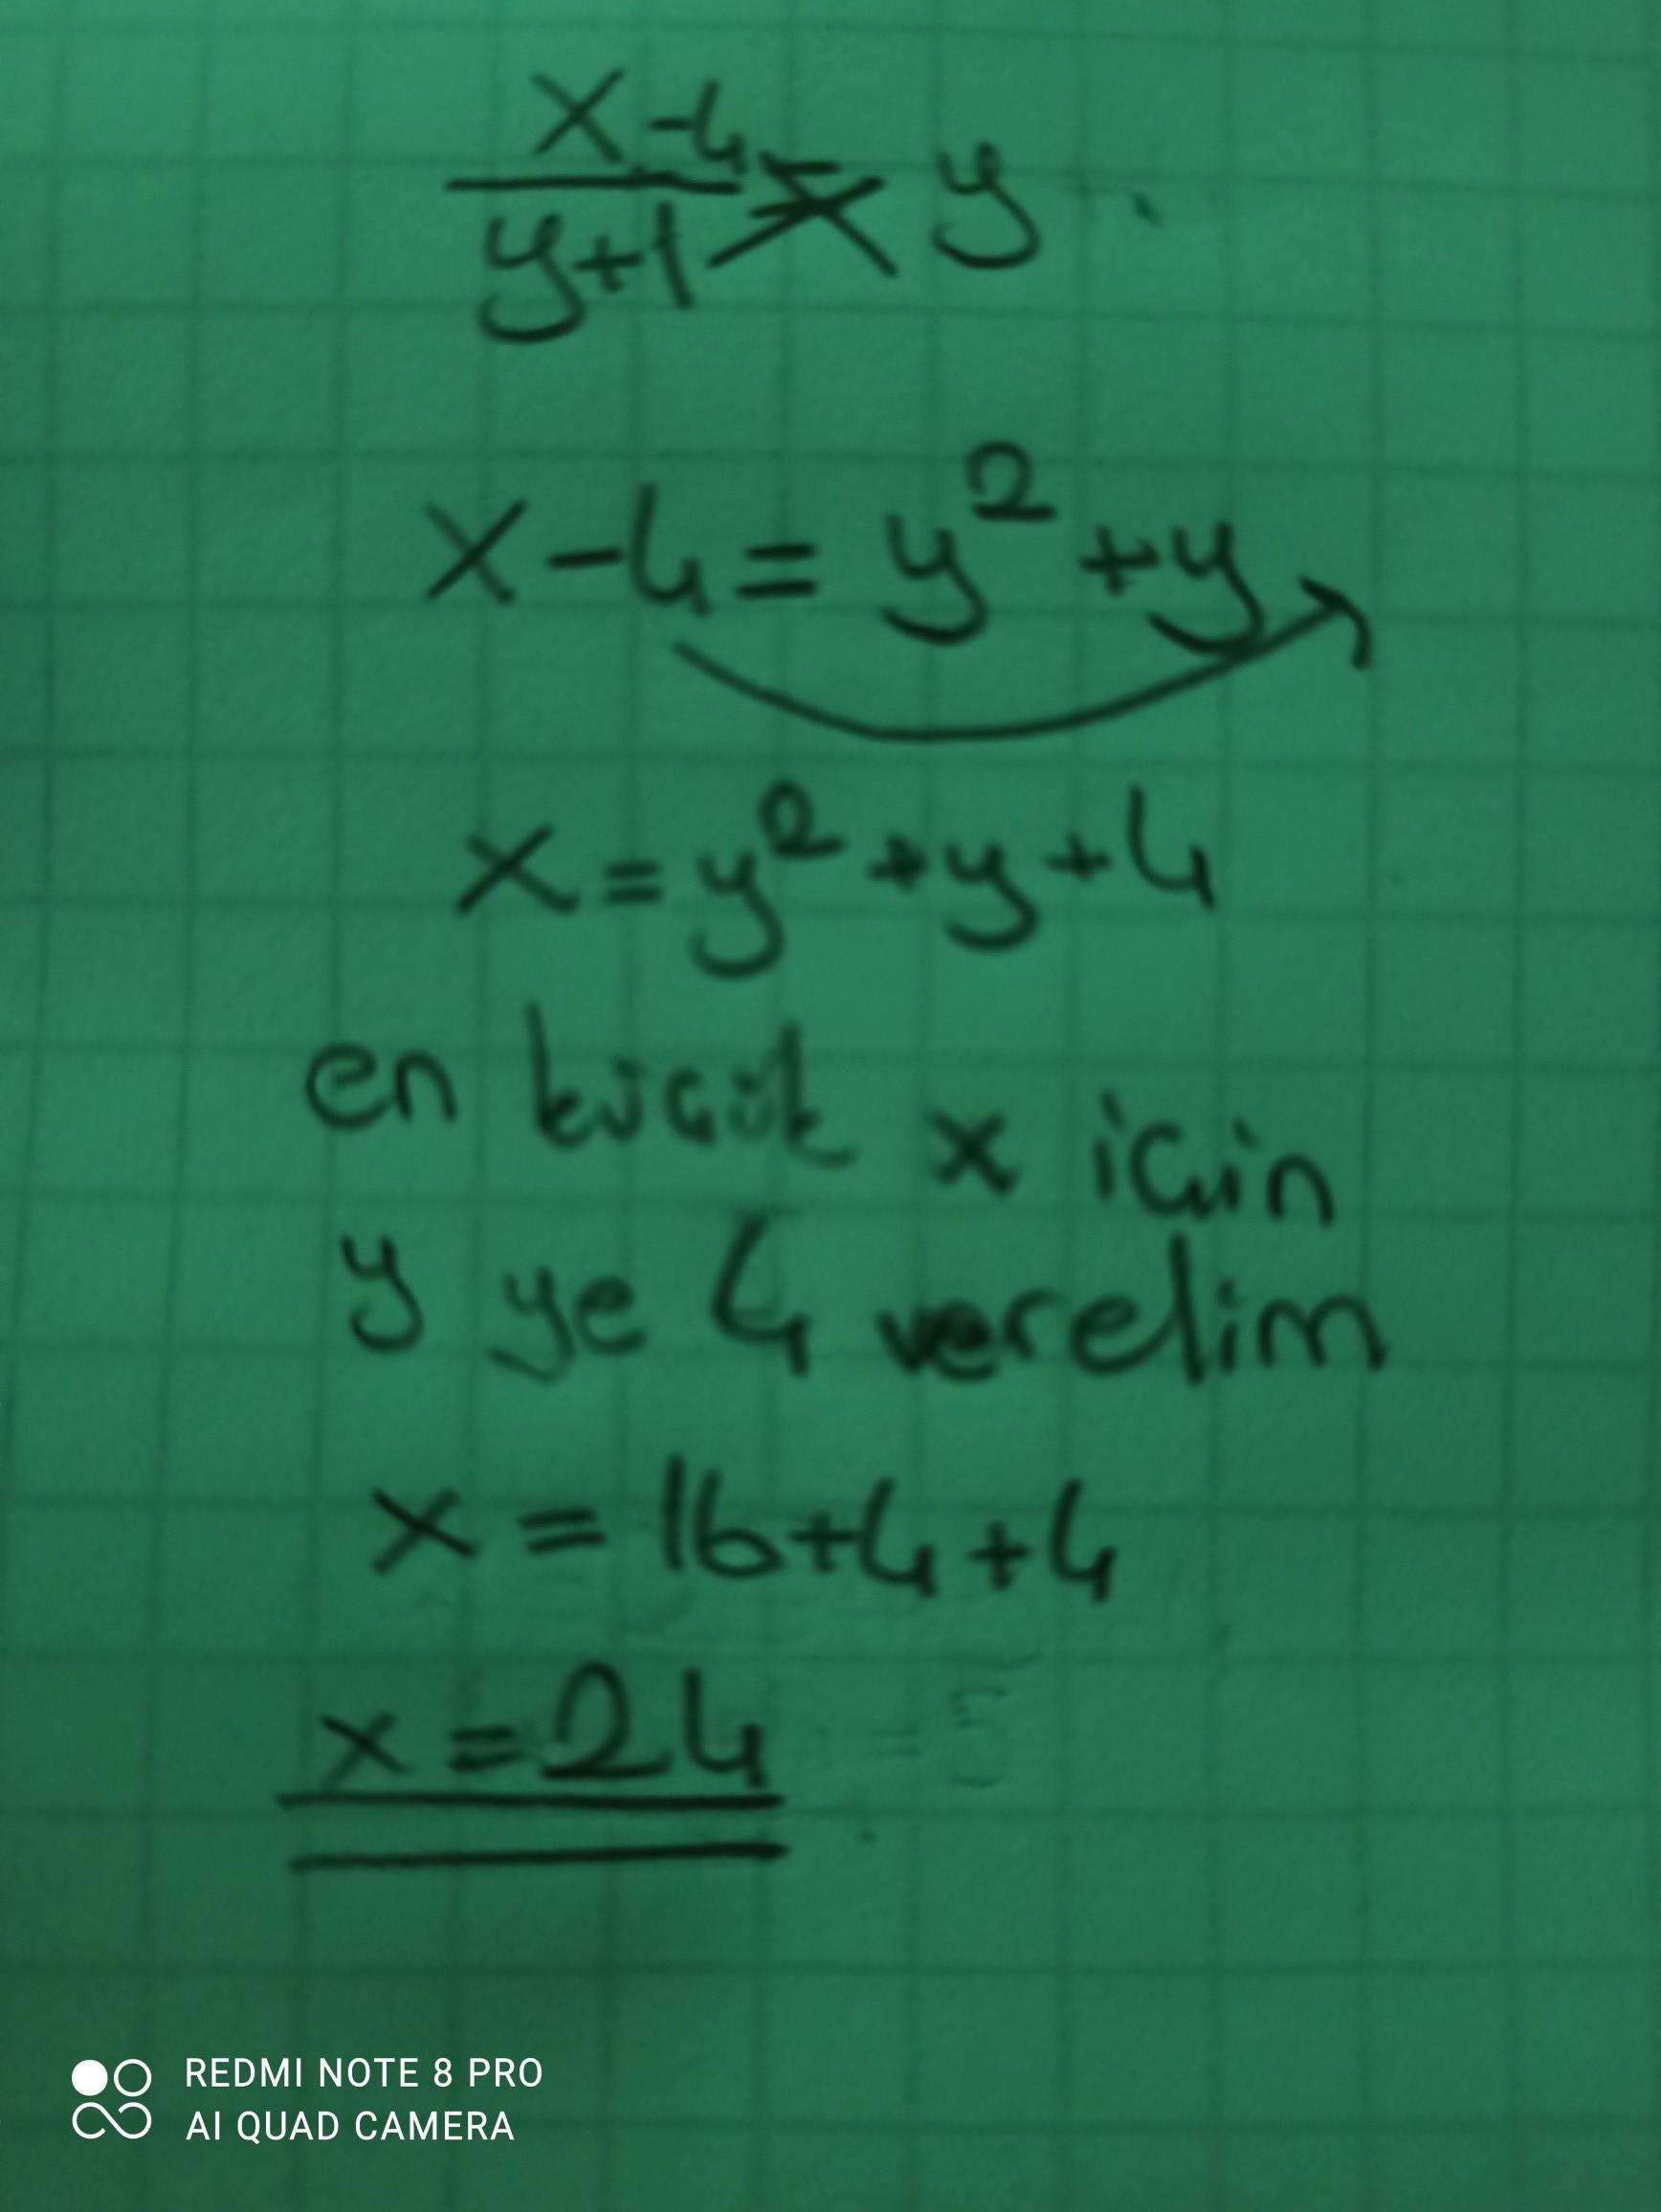 x-4 = y
y+1
x-4=y²+y
x=y²+y+4
en küçük x için
y ye 4 verelim
x=16+4+4
x=24
REDMI NOTE 8 PRO
AI QUAD CAMERA